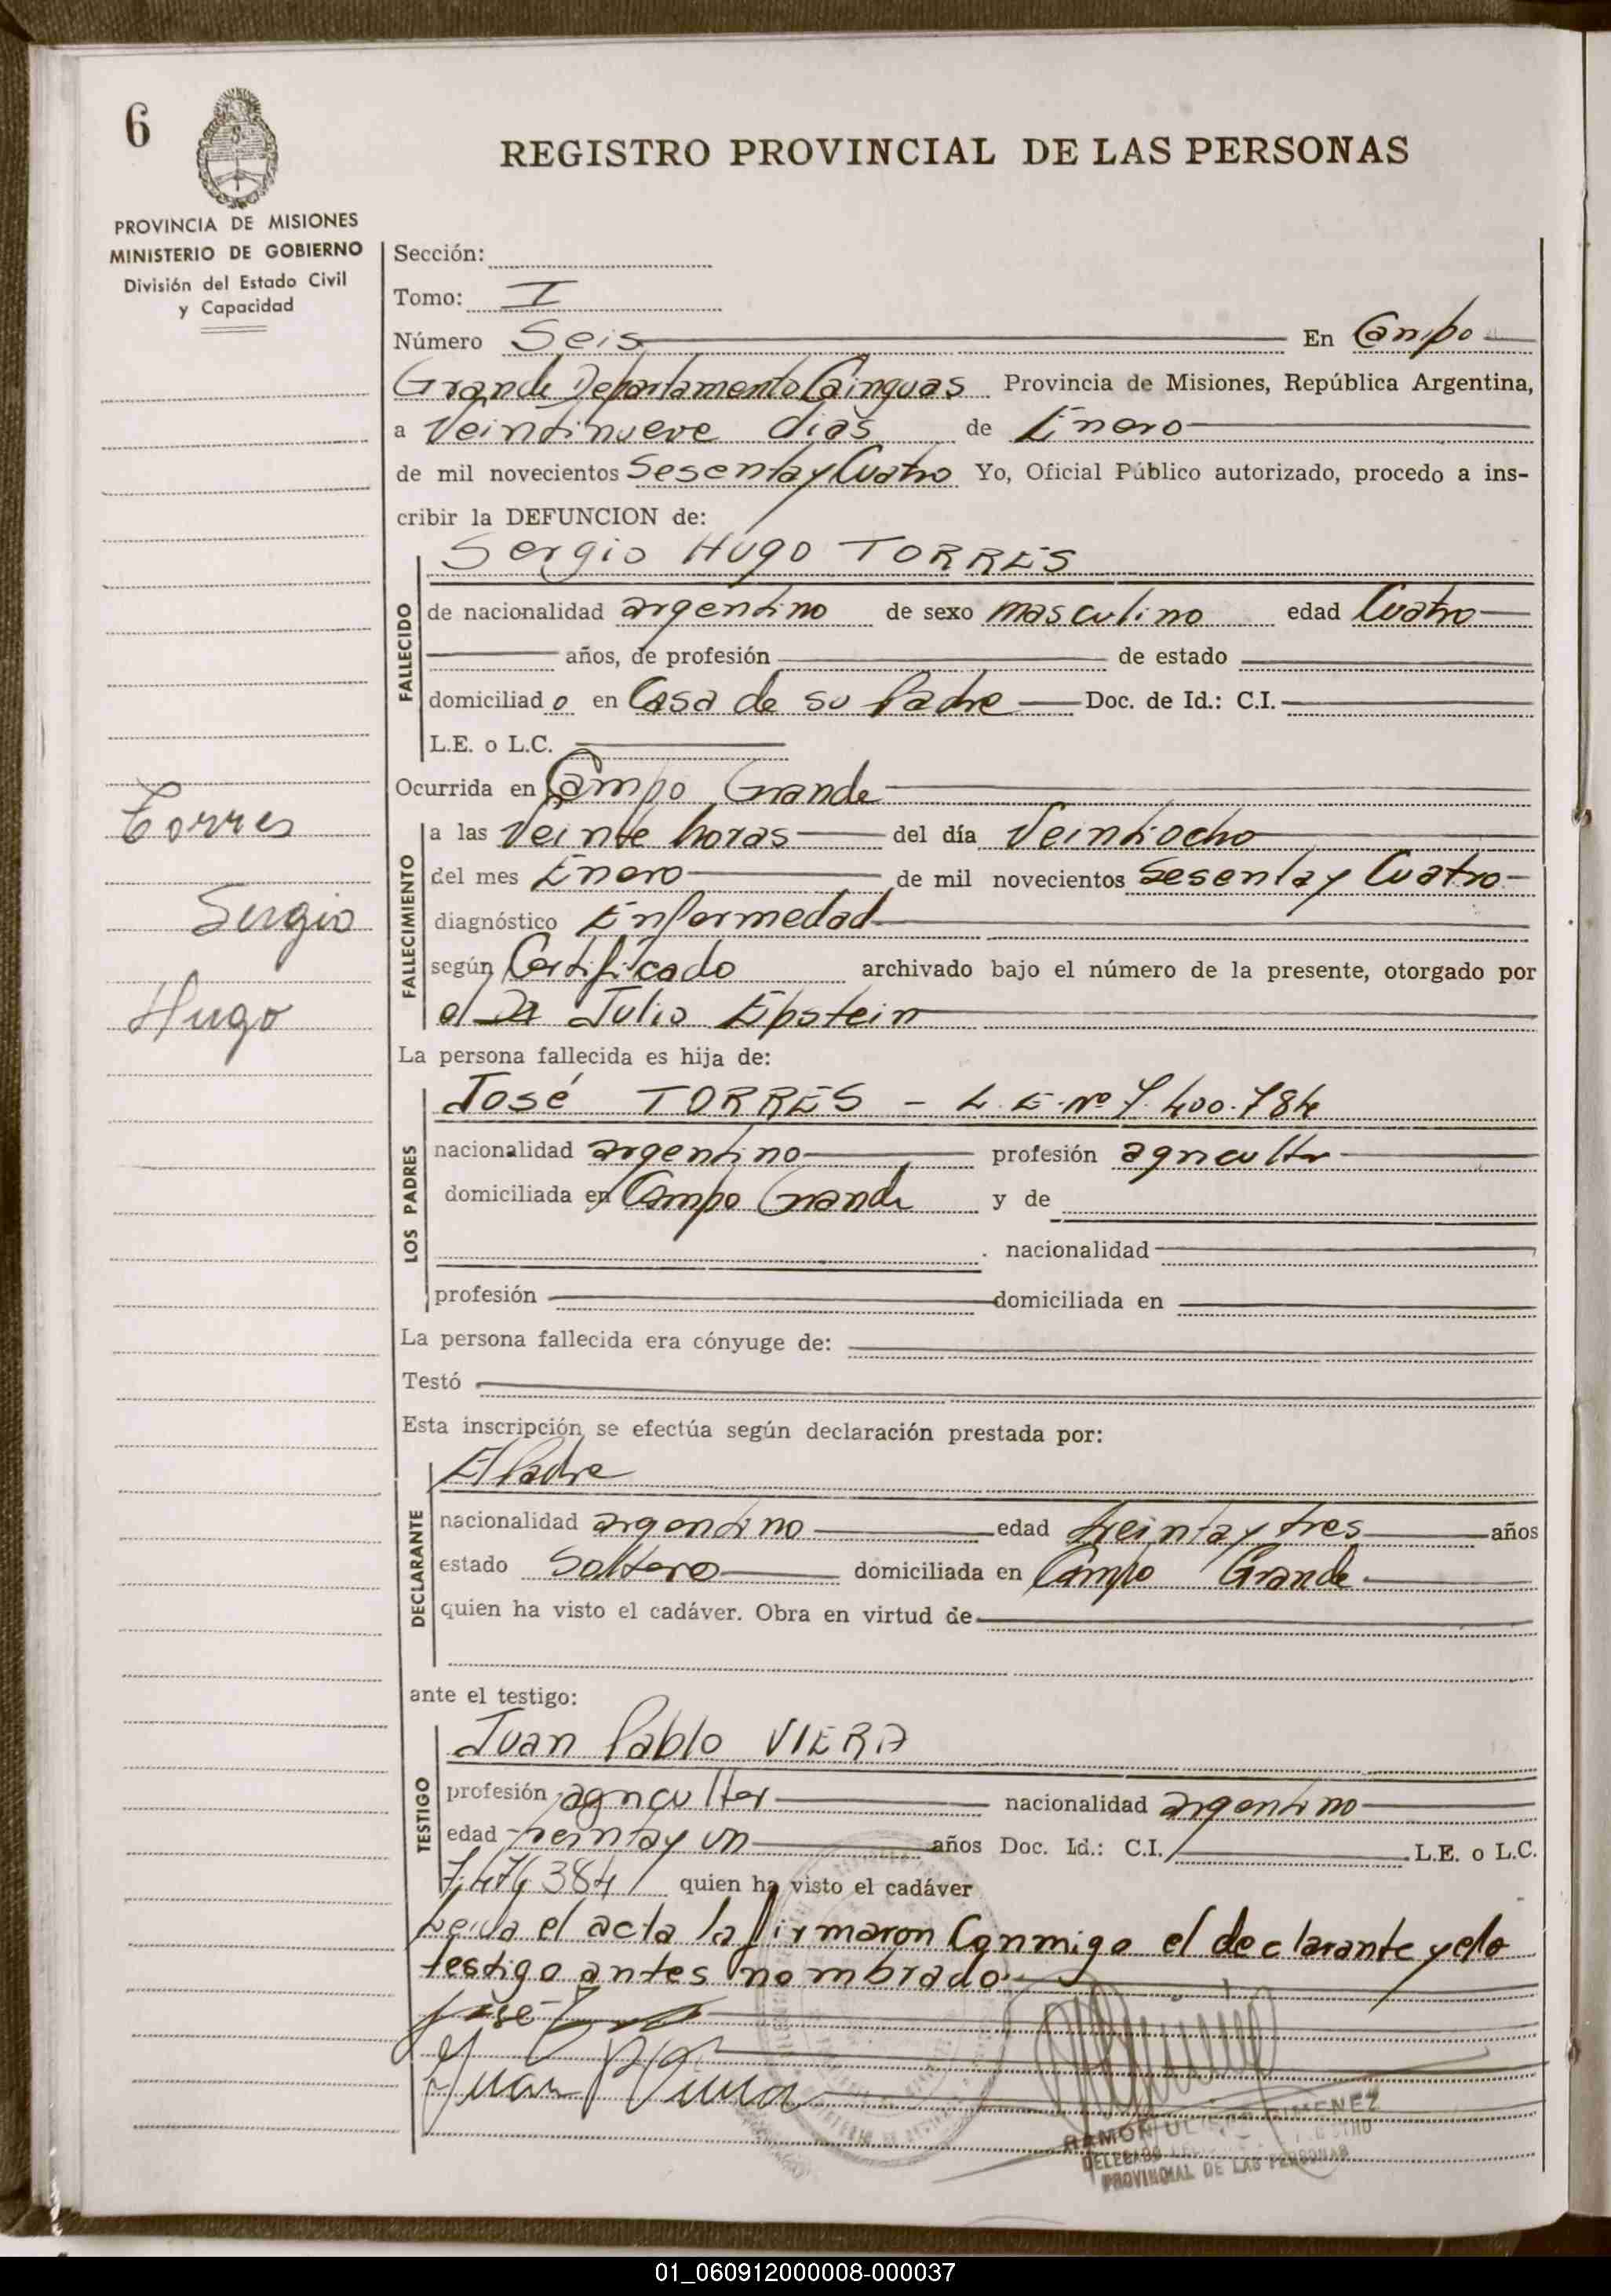 6
REGISTRO PROVINCIAL DE LAS PERSONAS
PROVINCIA DE MISIONES
MINISTERIO DE GOBIERNO
División del Estado Civil
y Capacidad
Torres
Sergio
Hugo
Sección:
Tomo: I
Número Seis En Campo
Grande Departamento Cainguas Provincia de Misiones, República Argentina,
a Veintinueve dias de Enero
de mil novecientos Sesenta y Cuatro Yo, Oficial Público autorizado, procedo a ins-
cribir la DEFUNCION de:
Sergio Hugo TORRES
FALLECIDO
de nacionalidad argentino de sexo masculino edad Cuatro
años, de profesión de estado
domiciliad o en Casa de su Padre Doc. de Id.: C.I.
L.E. o L.C.
Ocurrida en Campo Grande
FALLECIMIENTO
a las Veinte horas del día Veintiocho
del mes Enero de mil novecientos Sesenta y Cuatro
diagnóstico Enfermedad
según Certificado archivado bajo el número de la presente, otorgado por
el Dr Julio Epstein
La persona fallecida es hija de:
LOS PADRES
José TORRES - L.E. Nº 7.400.784
nacionalidad argentino profesión agricultor
domiciliada en Campo Grande y de
nacionalidad
profesión domiciliada en
La persona fallecida era cónyuge de:
Testó
Esta inscripción se efectúa según declaración prestada por:
DECLARANTE
El Padre
nacionalidad argentino edad treinta y tres años
estado Soltero domiciliada en Campo Grande
quien ha visto el cadáver. Obra en virtud de
ante el testigo:
TESTIGO
Juan Pablo VIERA
profesión agricultor nacionalidad argentino
edad treinta y un años Doc. Id.: C.I. L.E. o L.C.
7.476.384 quien ha visto el cadáver
Leida el acta la firmaron Conmigo el declarante y el
testigo antes nombrado
José
Juan P Viera
RAMON GIMENEZ
DELEGADO
PROVINCIAL DE LAS PERSONAS
01_060912000008-000037